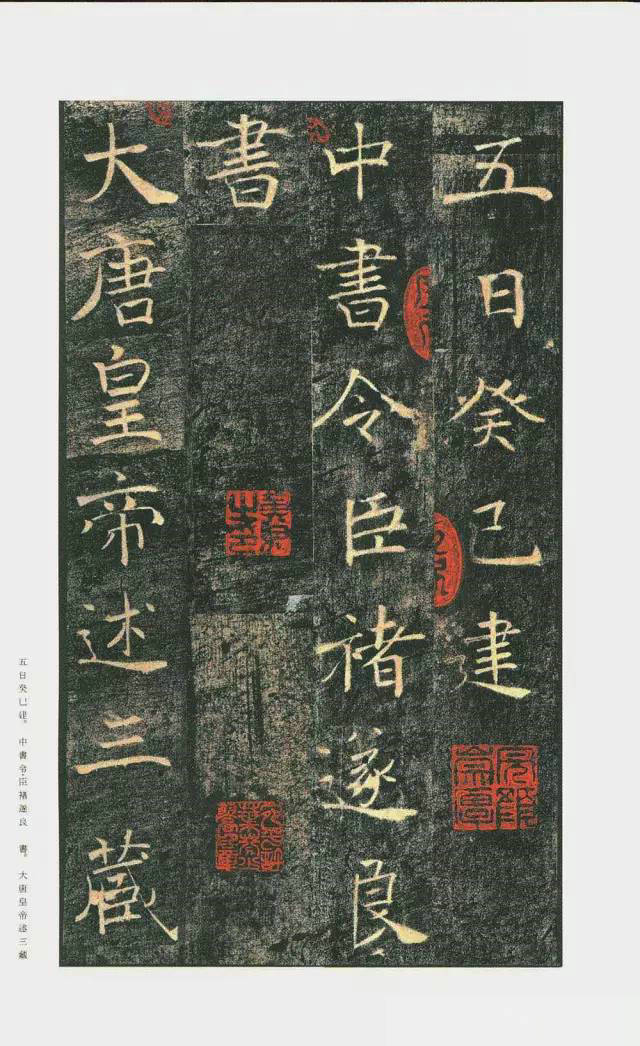 五日癸巳建
中書令臣褚遂良
書
大唐皇帝述三藏
五日癸巳建。中書令臣褚遂良 書。大唐皇帝述三藏